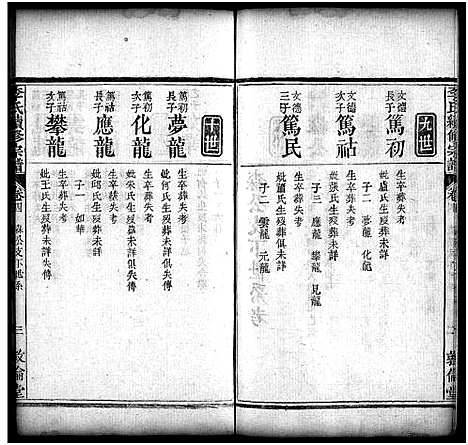 李氏續修宗譜
卷四
敦倫堂
九世
文德長子
篤初
生卒葬失考
妣盧氏生歿葬未詳
子二 夢龍 化龍
文德次子
篤祜
生卒葬失考
妣張氏生歿葬未詳
子三 應龍 攀龍 見龍
文德三子
篤民
生卒葬失考
妣董氏生歿葬俱未詳
子二 雲龍 元龍
十世
篤初長子
夢龍
生卒葬失考
妣何氏生歿葬未詳俱失傳
篤初次子
化龍
生卒葬失考
妣宋氏生歿葬未詳俱失傳
篤祜長子
應龍
生卒葬失考
妣邱氏生歿葬未詳
子一 如華
篤祜次子
攀龍
生卒葬失考
妣王氏生歿葬未詳失傳
李氏續修宗譜
卷四
三
敦倫堂